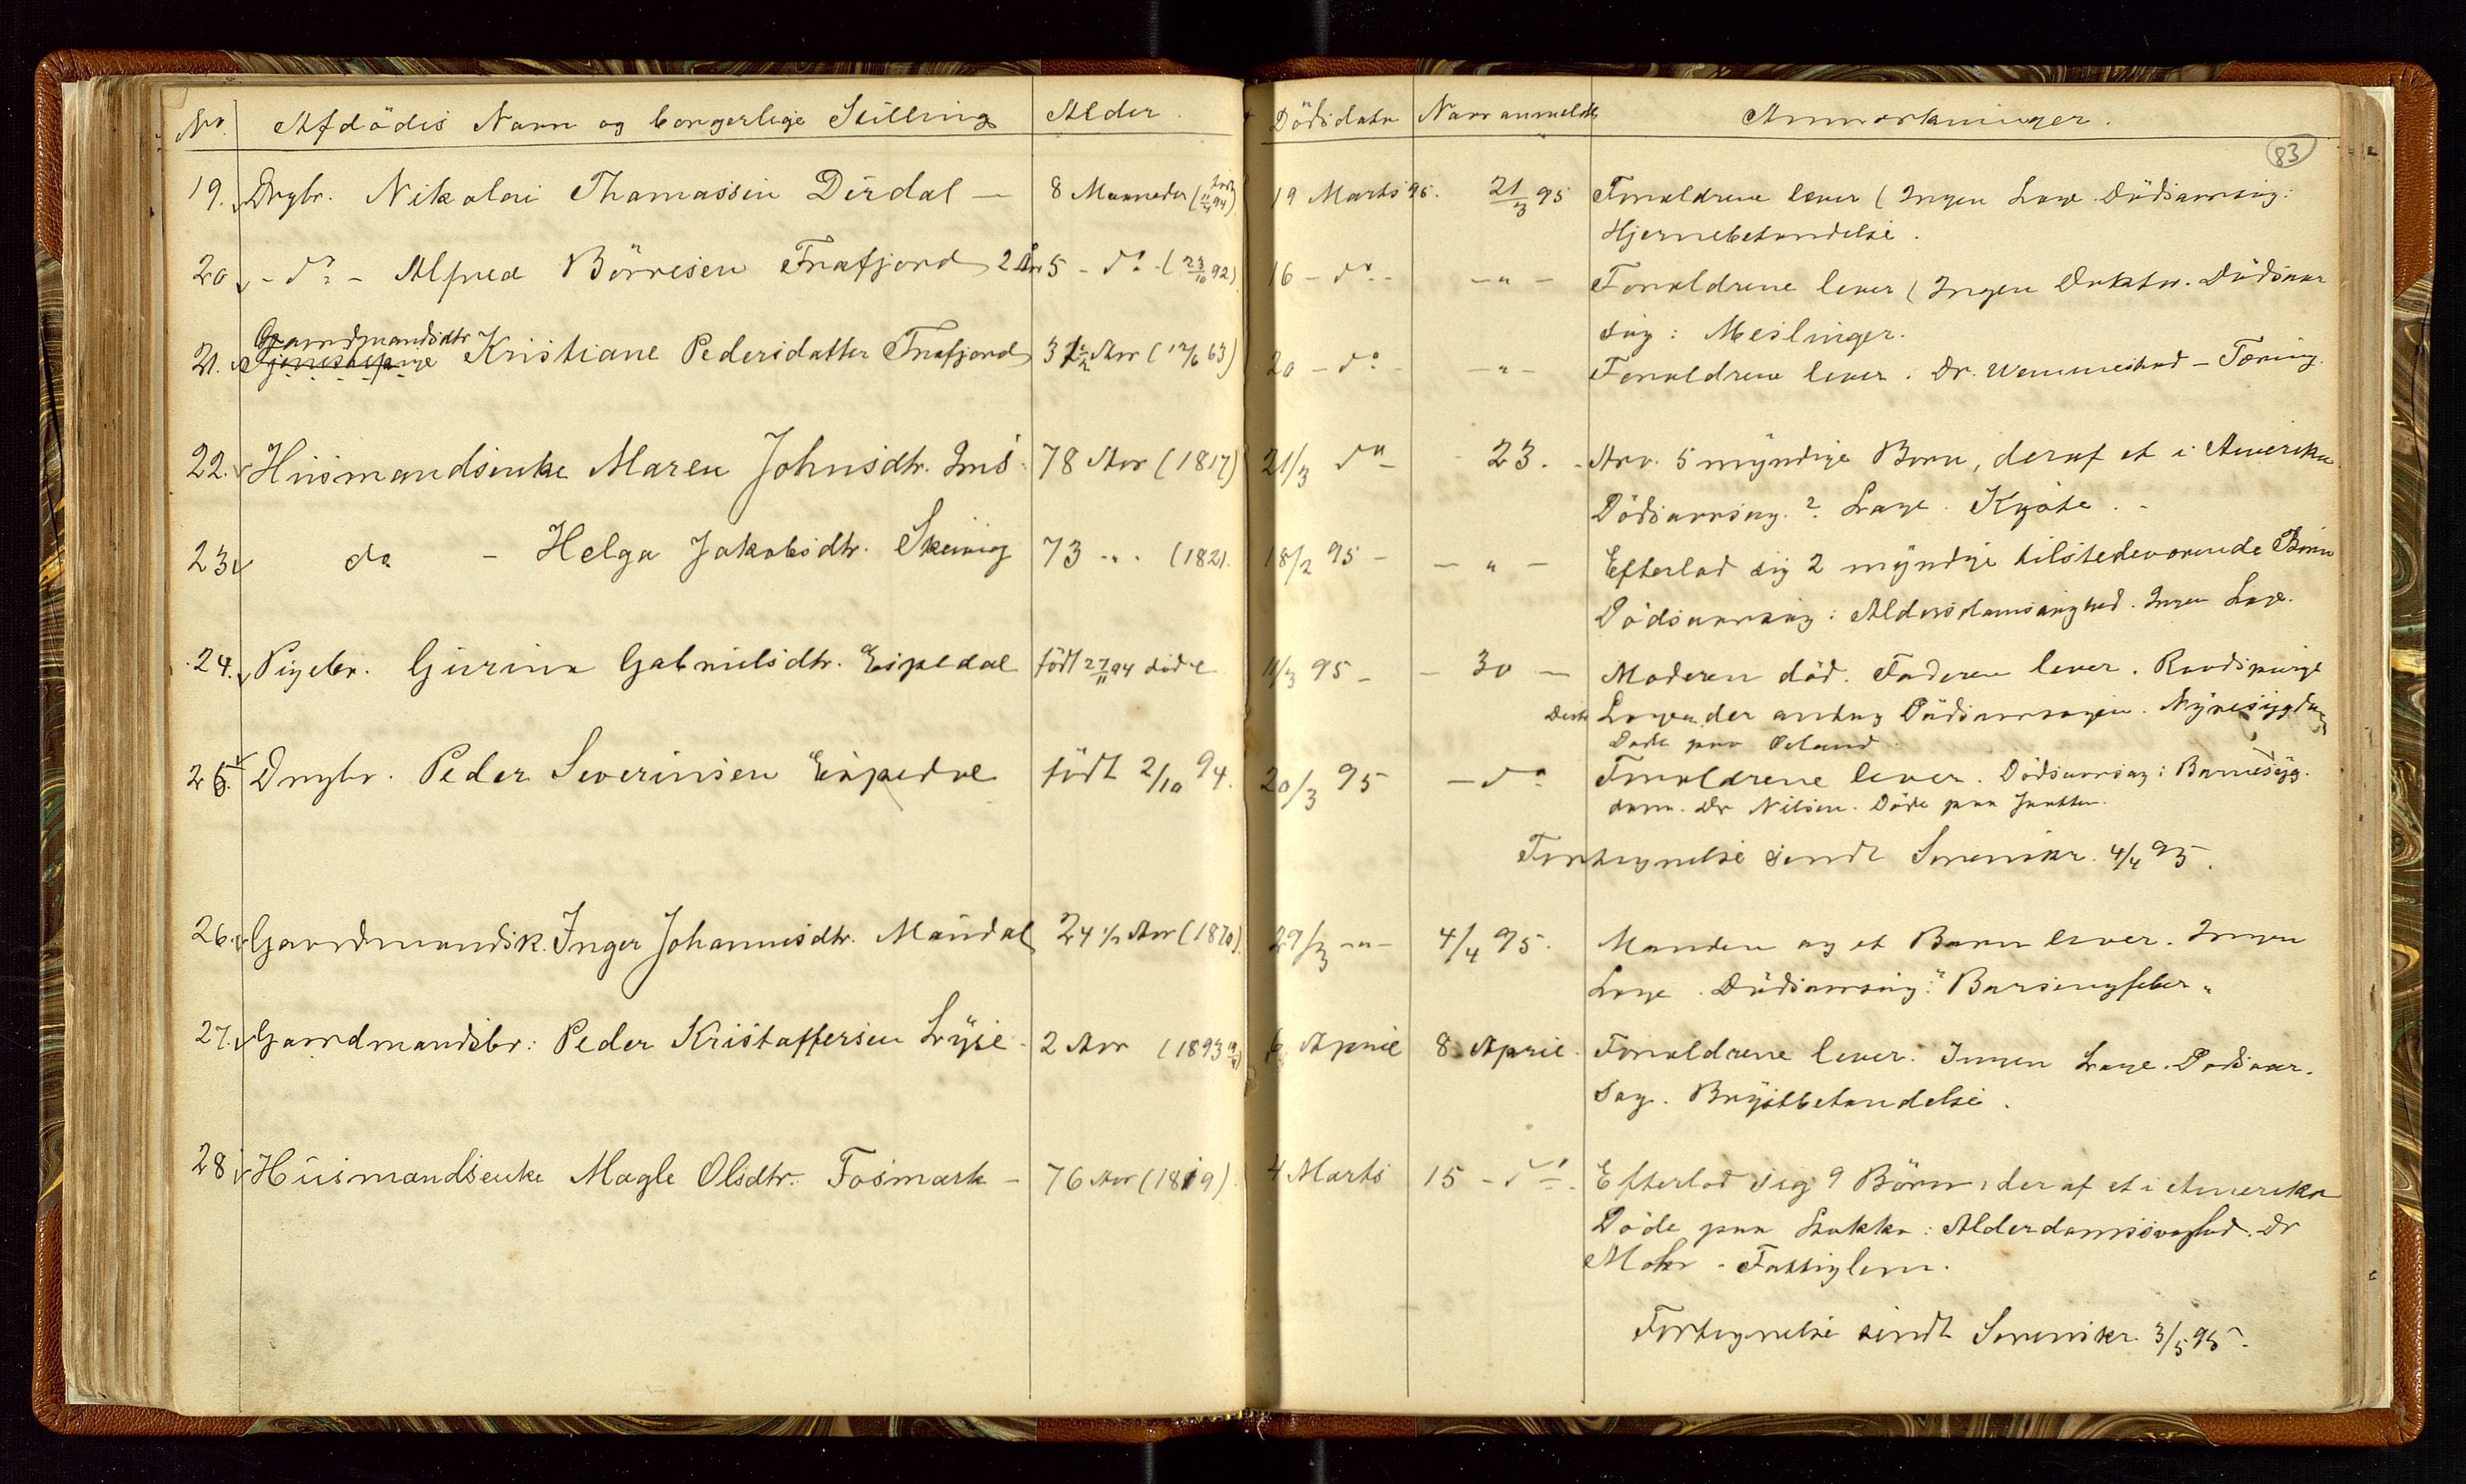 No. Afdödes Navn og borgerlige Stilling Alder Dödsdato Naar anmeldt Anmærkninger.
83
19. Drgbr. Nikolai Thomassen Dirdal — 8 Maaneder 19 Marts 95. 21/3 95 Forældrene lever (Ingen Læge Dödsaarsag:
Hjernebetændelse.
20. - do - Alfred Börresen Frafjord 2 Aar 5 - do - (23/10 92) 16 - do - - " - Forældrene lever (Ingen Doktor. Dödsaar
sag: Meslinger.
Gaardmandsdtr
21. Kristiane Pedersdatter Frafjord 31 1/2 Aar (12/6 63) 20 - do - - " - Forældrene lever. Dr. Wennestad - Tæring.
22. Husmandsenke Maren Johnsdtr. Ims. 78 Aar (1817) 21/3 do - 23. - Arv. 5 myndige Börn, deraf et i Amerika
Dödsaarsag.? Læge. Kyöte.
23 do - Helga Jakobsdtr. Skeiving 73 - " - (1821. 18/2 95 - - " - Efterlod sig 2 myndige tilstedeværende Börn
Dödsaarsag: Alderdomsvaghed. Ingen Læge.
24. Pigebr. Gurina Gabrielsdtr. Espedal födt 27/11 94 döde 11/3 95 - - 30 - Moderen död. Faderen lever. Raadspurgt
Lægen der antog Dödsaarsagen. Nyresygdom
Döde paa
25. Drgbr. Peder Severinsen Espedal födt 2/10 94. 20/3 95 - do Forældrene lever. Dödsaarsag: Barnesyg-
dom. Dr Nilsen. Döde paa
Fortegnelse sendt Sorenskr. 4/4 95.
26. Gaardmandsk. Inger Johannesdtr. Maudal 24 1/2 Aar (1870) 29/3 - " - 4/4 95. Manden og et Barn lever. Ingen
Læge. Dödsaarsag: "Barselsfeber"
27. Gaardmandsbr: Peder Kristoffersen Lyse - 2 Aar (1893 6 April 8 April. Forældrene lever. Ingen Læge. Dödsaar-
sag. Brystbetændelse.
28 Husmandsenke Magle Olsdtr. Fosmark - 76 Aar (1819). 4 Marts 15 - do - Efterlod sig 9 Börn, deraf et i Amerika
Döde paa Stokka: Alderdomssvaghed. Dr
Mohr - Fattiglem.
Fortegnelse sendt Sorenskr. 3/5 95.